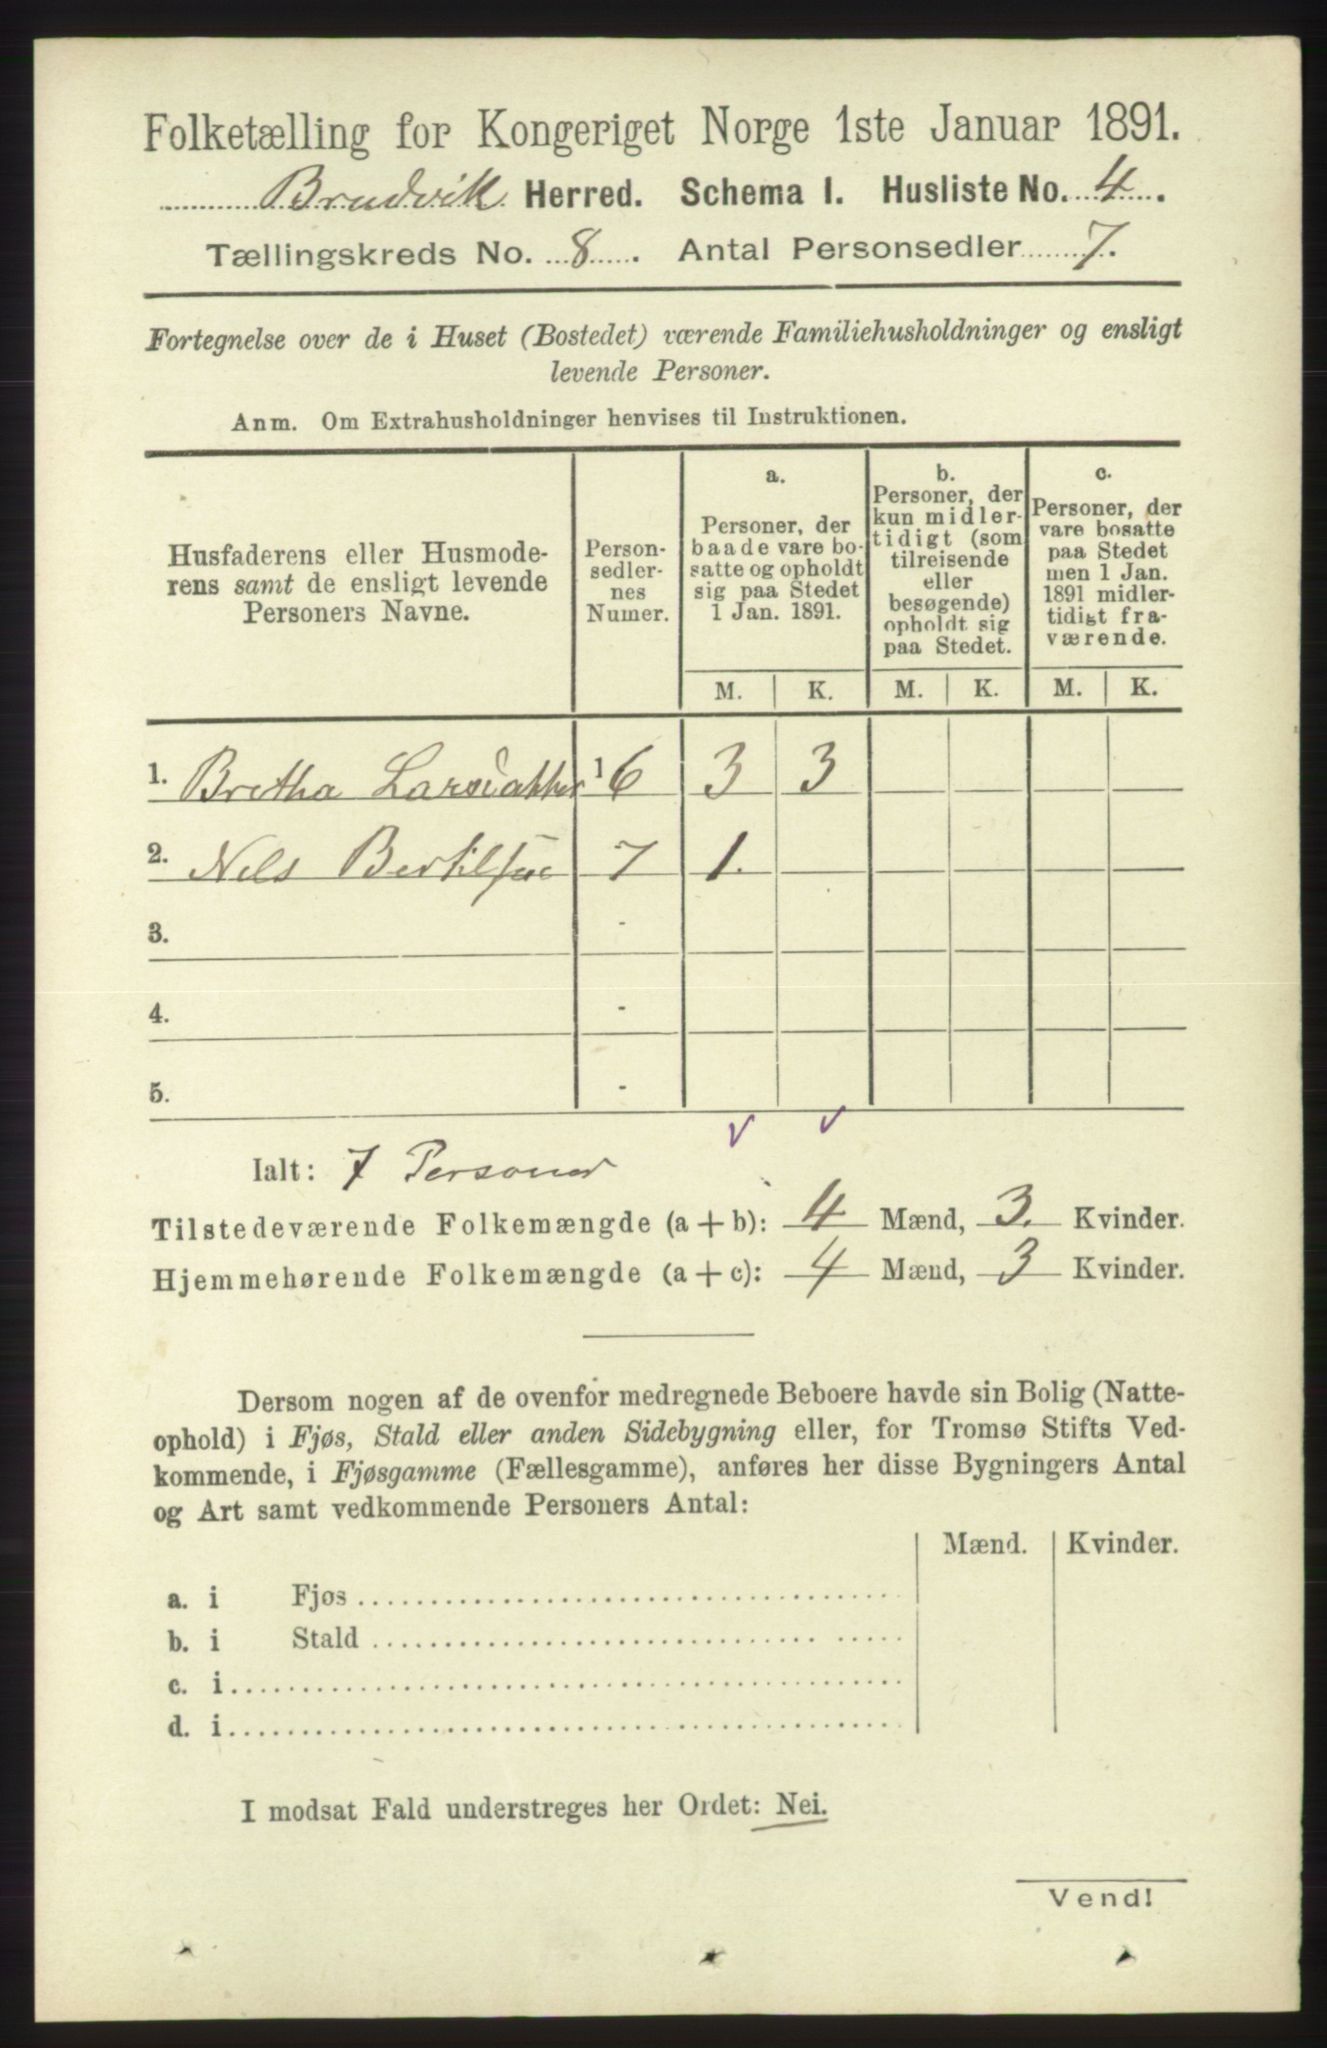 Folketælling for Kongeriget Norge 1ste Januar 1891.
Brudvik Herred. Schema 1. Husliste No. 4.
Tællingskreds No. 8. Antal Personsedler 7.
Fortegnelse over de i Huset (Bostedet) værende Familiehusholdninger og ensligt
levende Personer.
Anm. Om Extrahusholdninger henvises til Instruktionen.
Husfaderens eller Husmode-
rens samt de ensligt levende
Personers Navne.
Person-
sedler-
nes
Numer.
a.
Personer, der
baade vare bo-
satte og opholdt
sig paa Stedet
1 Jan. 1891.
b.
Personer, der
kun midler-
tidigt (som
tilreisende
eller
besøgende)
opholdt sig
paa Stedet.
c.
Personer, der
vare bosatte
paa Stedet
men 1 Jan.
1891 midler-
tidigt fra-
værende.
M. K. M. K. M. K.
1. Bretha 1 6 3 3
2. Nels 7 1.
3. -
4. -
5. -
Ialt: 7 Personer
Tilstedeværende Folkemængde (a + b): 4 Mænd, 3. Kvinder.
Hjemmehørende Folkemængde (a + c): 4 Mænd, 3 Kvinder.
Dersom nogen af de ovenfor medregnede Beboere havde sin Bolig (Natte-
ophold) i Fjøs, Stald eller anden Sidebygning eller, for Tromsø Stifts Ved-
kommende, i Fjøsgamme (Fællesgamme), anføres her disse Bygningers Antal
og Art samt vedkommende Personers Antal:
Mænd. Kvinder.
a. i Fjøs
b. i Stald
c. i
d. i
I modsat Fald understreges her Ordet: Nei.
Vend!